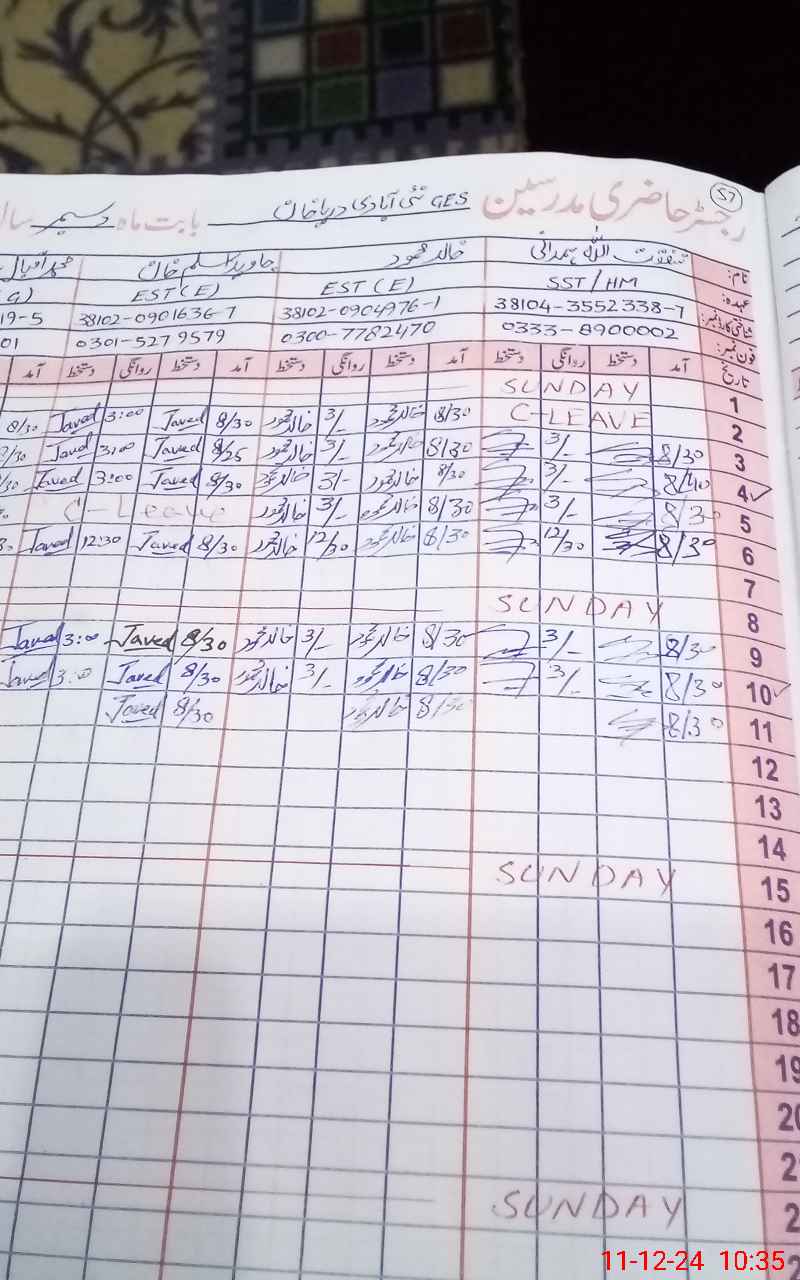 57
رجسٹر حاضری مدرسین GES نئی آبادی دریا خان بابت ماہ دسمبر سال
نام: اللہ ہمدانی خالد محمود جاوید اسلم خان محمد اقبال
عہدہ: SST/HM EST(E) EST(E)
شناختی کارڈ نمبر: 38104-3552338-7 38102-0904976-1 38102-0901636-7 19-5
فون نمبر: 0333-8900002 0300-7782470 0301-5279579 01
تاریخ آمد دستخط روانگی دستخط آمد دستخط روانگی دستخط آمد دستخط روانگی دستخط آمد
1 SUNDAY
2 C-LEAVE 8/30 خالد محمود 3/- خالد محمود 8/30 Javed 3:00 Javed 8/30
3 8/30 3/- 8/30 خالد محمود 3/- خالد محمود 8/25 Javed 3:00 Javed /30
4 ✓ 8/40 3/- 8/30 خالد محمود 3/- خالد محمود 8/30 Javed 3:00 Javed /30
5 8/30 3/- 8/30 خالد محمود 3/- خالد محمود C-Leave
6 8/30 12/30 8/30 خالد محمود 12/30 خالد محمود 8/30 Javed 12:30 Javed
7
8 SUNDAY
9 8/30 3/- 8/30 خالد محمود 3/- خالد محمود 8/30 Javed 3:00 Javed
10 ✓ 8/30 3/- 8/30 خالد محمود 3/- خالد محمود 8/30 Javed 3:00 Javed
11 8/30 8/30 خالد محمود 8/30 Javed
12
13
14
15 SUNDAY
16
17
18
19
20
2
2 SUNDAY
2
11-12-24 10:35